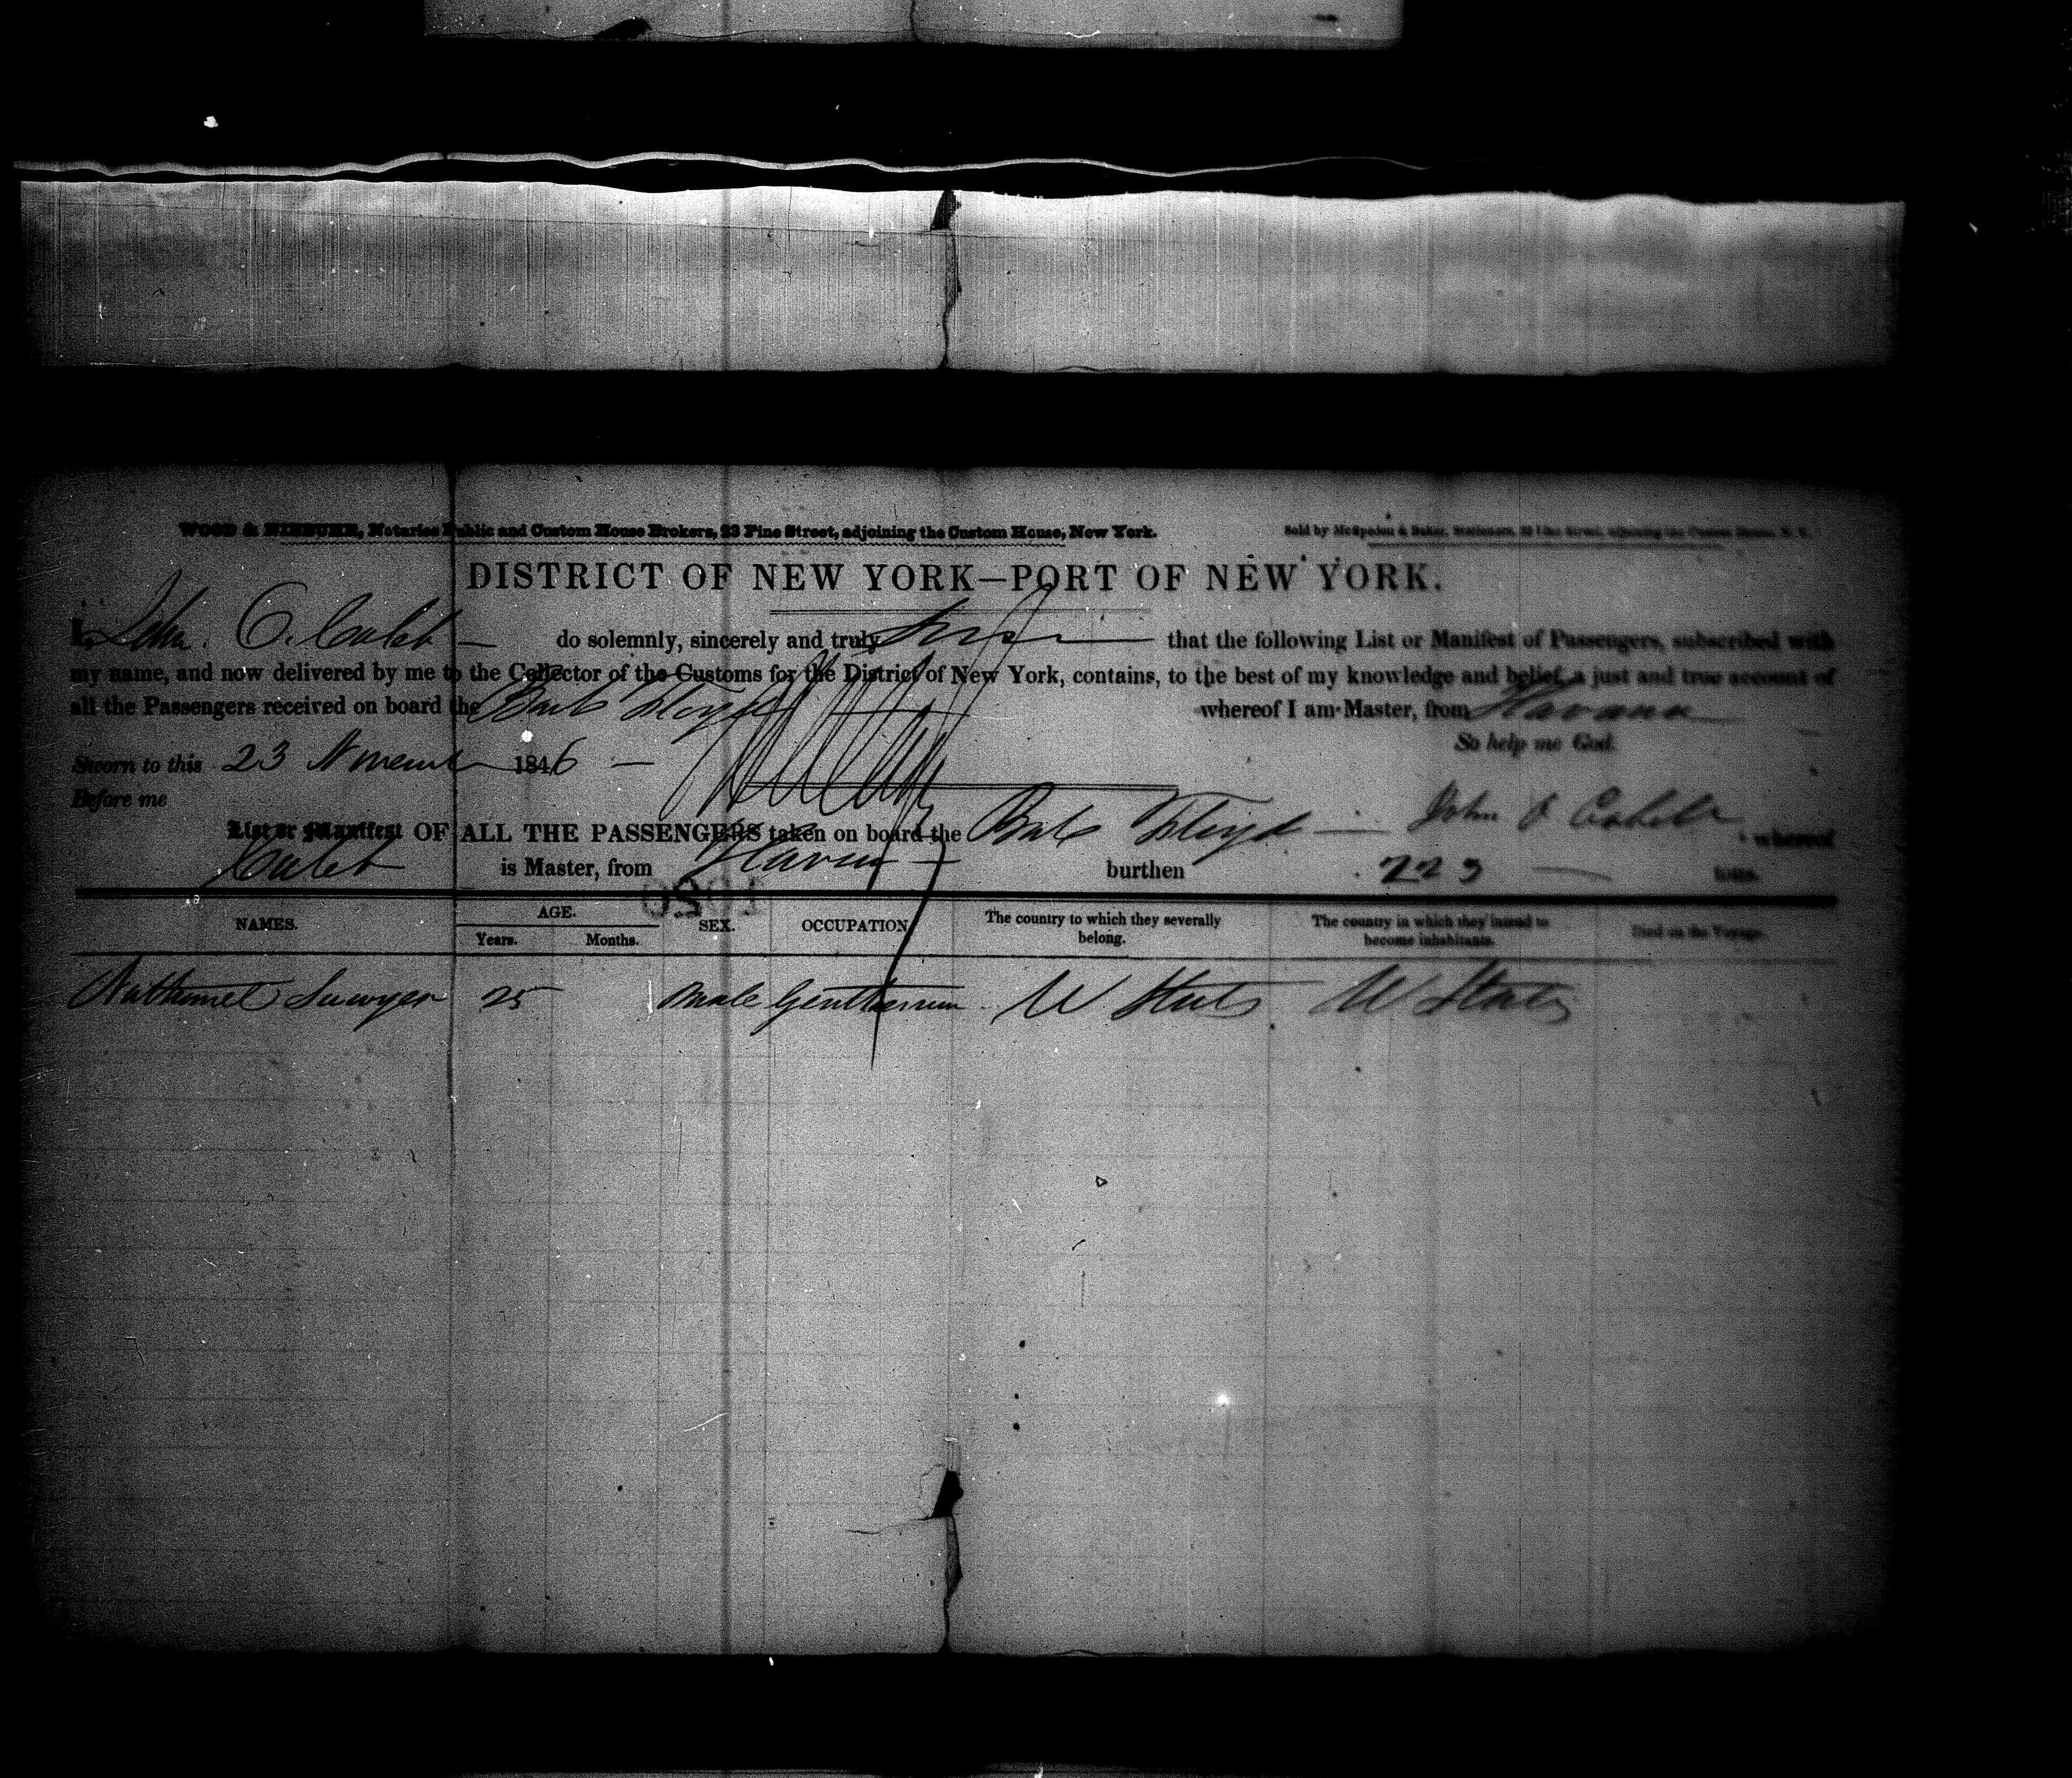 WOOD & NIEBUHR, Notaries Public and Custom House Brokers, 23 Pine Street, adjoining the Custom House, New York.
Sold by McSpedon & Baker, Stationers, 25 Pine Street, adjoining the Custom House, N. Y.
DISTRICT OF NEW YORK—PORT OF NEW YORK.
I, John O. Culeb — do solemnly, sincerely and truly swear that the following List or Manifest of Passengers, subscribed with
my name, and now delivered by me to the Collector of the Customs for the District of New York, contains, to the best of my knowledge and belief, a just and true account of
all the Passengers received on board the Bark Floyd whereof I am Master, from Havana
So help me God.
Sworn to this 23 November 1846 —
Before me
John O
List or Manifest OF ALL THE PASSENGERS taken on board the Bark Floyd whereof
is Master, from Havana — burthen 223 — tons.
NAMES. AGE. SEX. OCCUPATION The country to which they severally belong. The country in which they intend to become inhabitants. Died on the Voyage.
Years. Months.
Nathaniel Sawyer 25 Male Gentleman U States U States